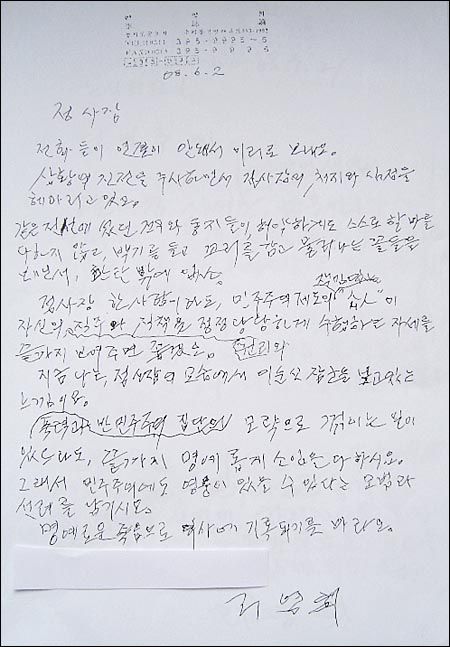 08. 6. 2
정 사장
전화 들이 연결이 안돼서 이리로 보내오.
상황의 진전을 주시하면서 정사장의 처지와 심정을
헤아리고 있오.
같은 전선에 섰던 전우와 동지들이 허약하게도 스스로 할 바를
다하지 않고, 백기를 들고 꼬리를 감고 물러나는 꼴들을
보면서, 한탄 밖에 없소.
정사장 한 사람이라도, 민주주의 제도의 책임있는 "公人"이
자신의 직무와 직책을 정정당당하게 수행하는 자세를
끝까지 보여주면 좋겠소. 권리와
지금 나는, 정사장의 모습에서 이순신 장군을 보고 있는
느낌이오.
폭력과 반민주주의 집단의 모략으로 꺾이는 일이
있드라도, 끝까지 명예롭게 소임을 다 하시오.
그래서 민주주의에도 영웅이 있을 수 있다는 모범과
선례를 남기시오.
명예로운 죽음으로 역사에 기록되기를 바라오.
리 영 희